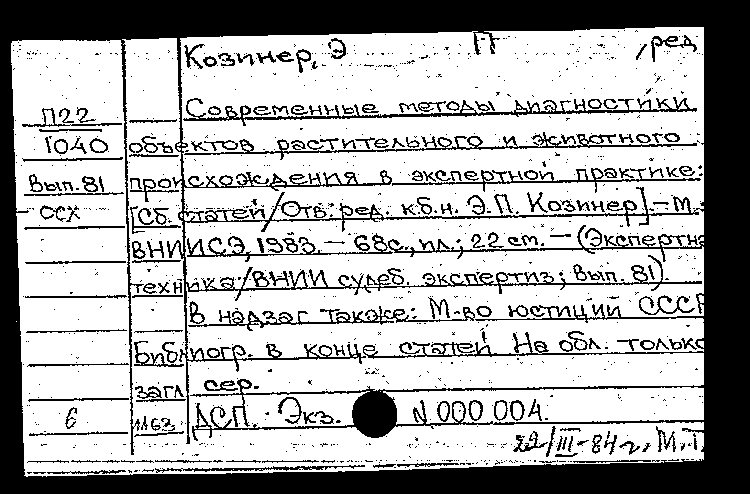 Козинер, Э П , ред
П22 Современные методы диагностики
1040 объектов растительного и животного
Вып. 81 происхождения в экспертной практике:
ОСХ [Сб. статей/Отв. ред. к.б.н. Э.П. Козинер].- М.:
ВНИИСЭ, 1983. - 68с., ил.; 22 см. - (Экспертна
техника/ВНИИ судеб. экспертиз; Вып. 81).
В надзаг также: М-во юстиции СССР
Библиогр. в конце статей На обл. только
загл сер.
6 1163 ДСП. Экз. N 000 004.
22/III-84г. М.Т